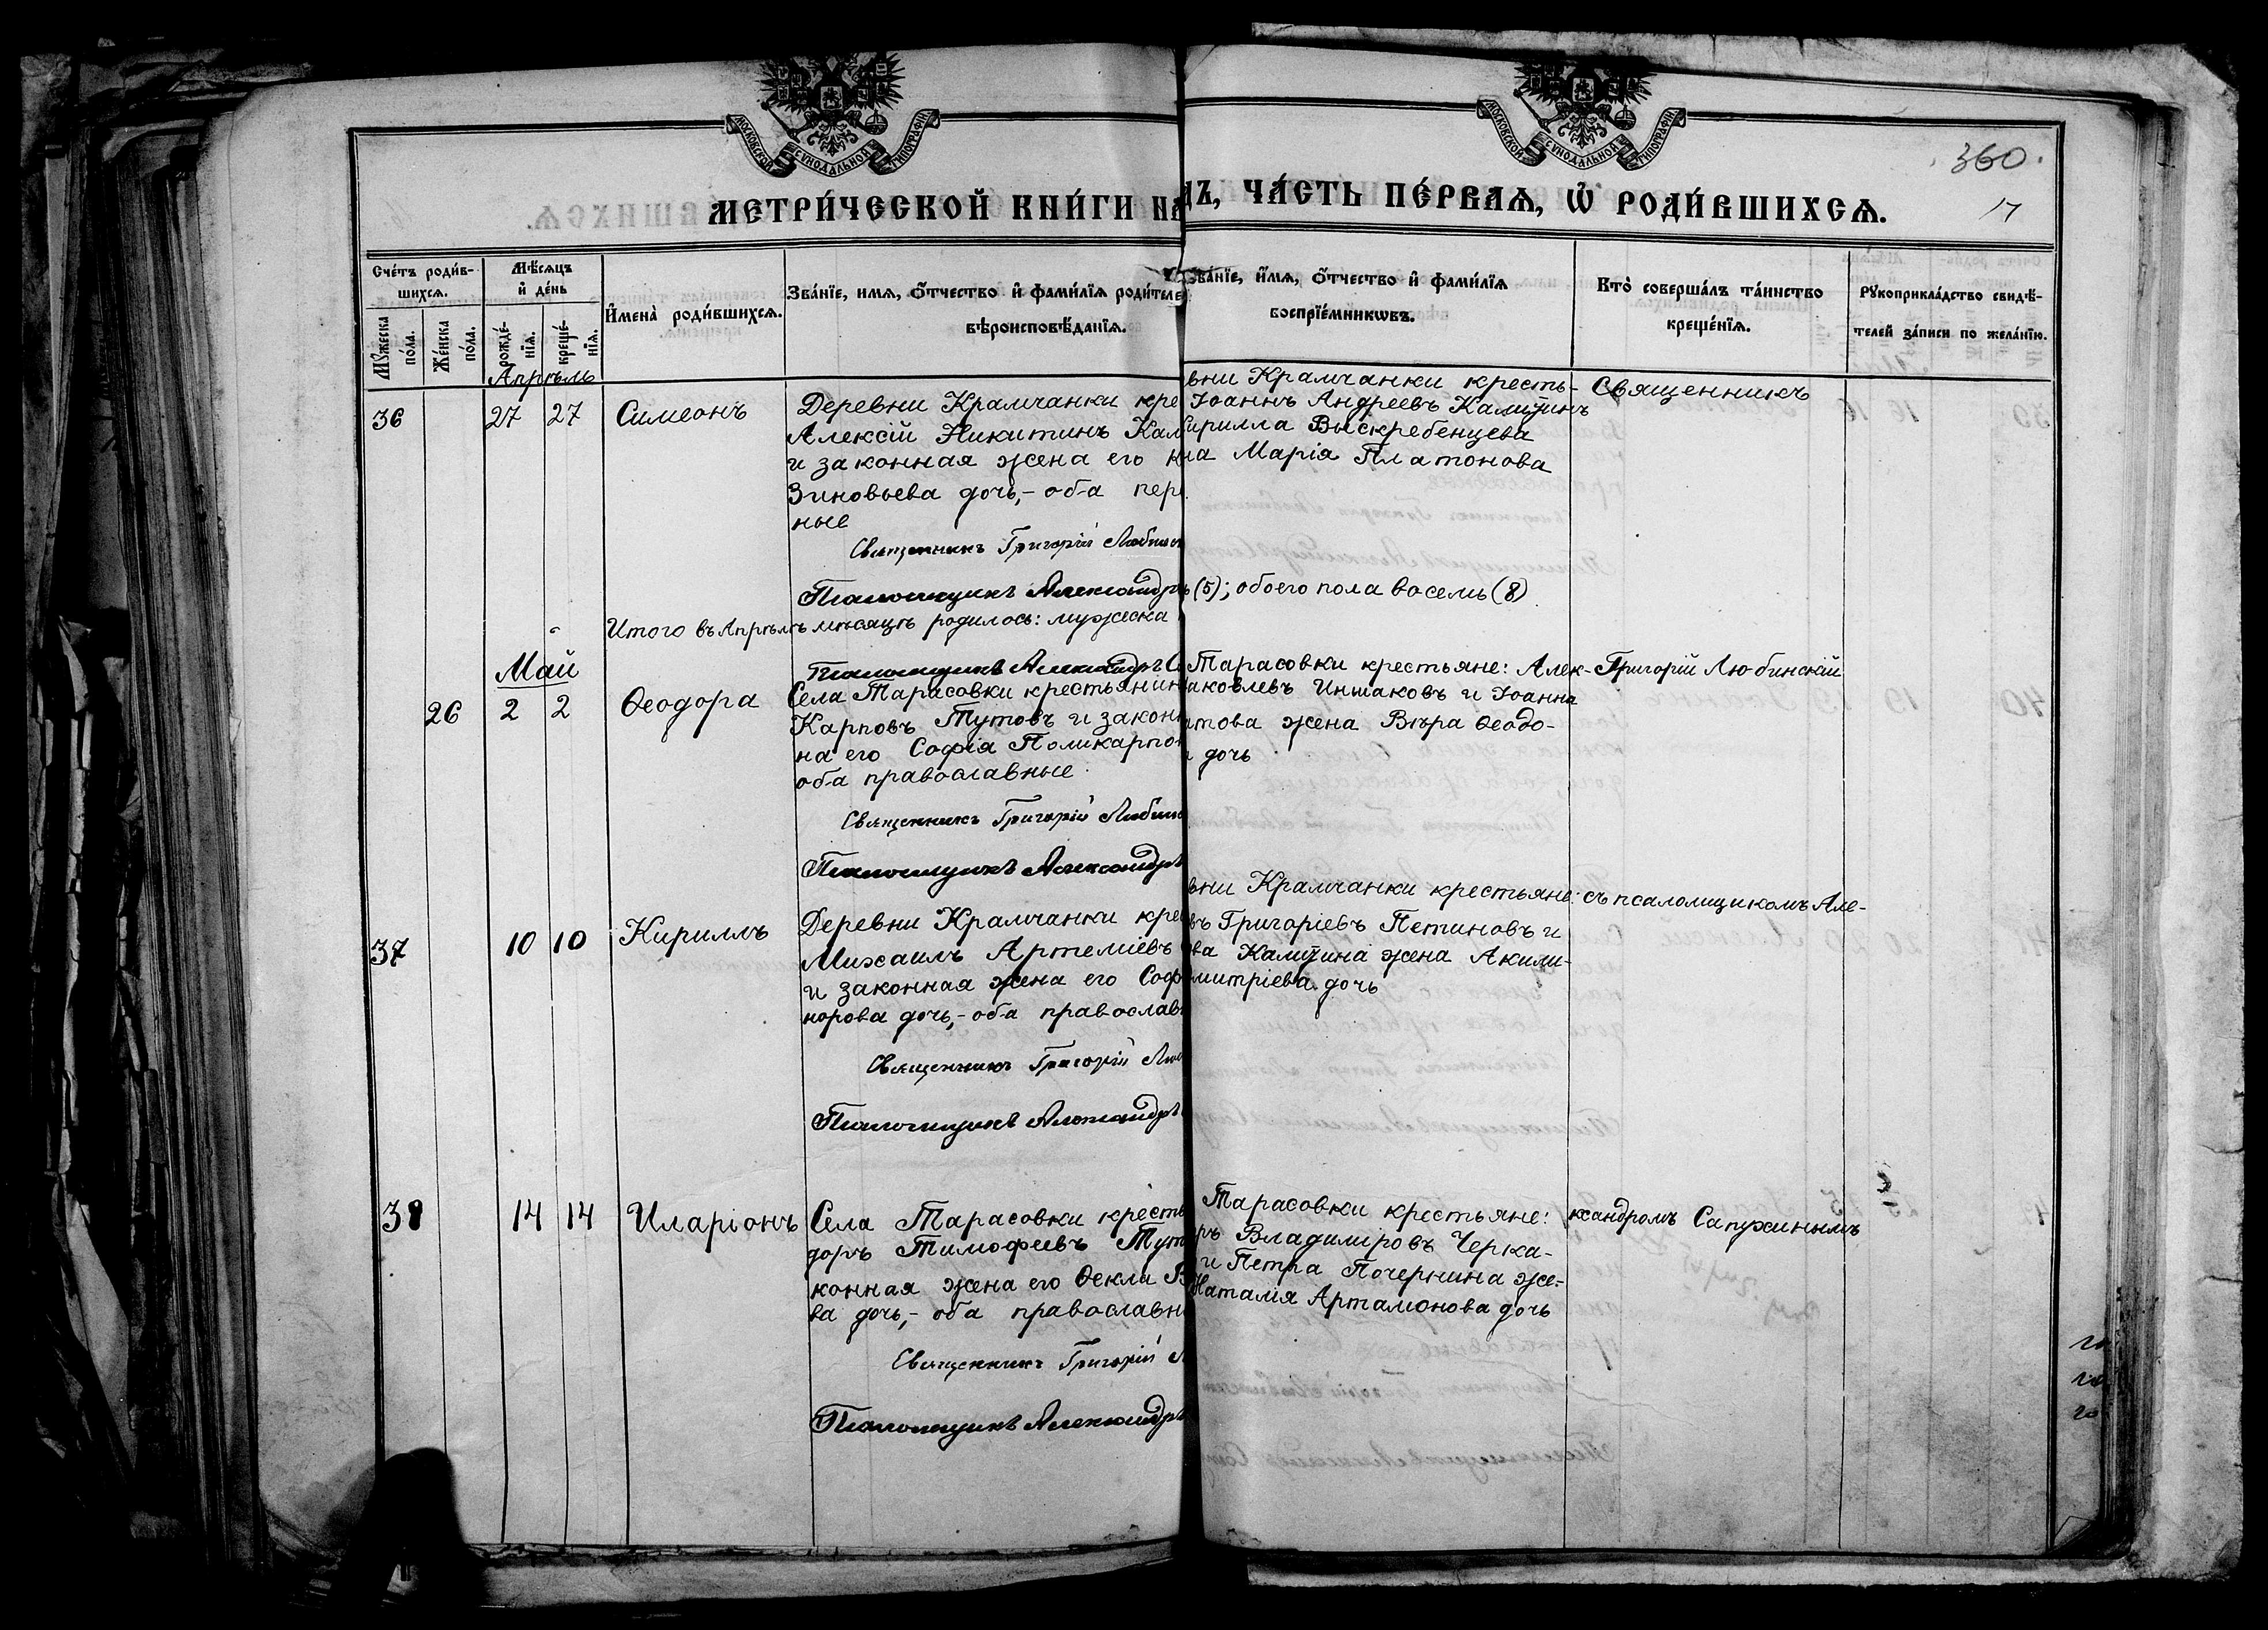 МОСКОВСКОЙ СѴНОДАЛЬНОЙ ТИПОГРАФІИ
МОСКОВСКОЙ СѴНОДАЛЬНОЙ ТИПОГРАФІИ
360.
17
МЕТРИ́ЧЕСКОЙ КНИ́ГИ НА
ДЪ, ЧА́СТЬ ПЕ́РВАѦ, Ѡ҆ РОДИ́ВШИХСѦ.
Сче́тъ роди́в-
шихсѧ.
Мѣ́сѧцъ
и҆ де́нь
Мꙋ́жеска
по́ла.
Же́нска
по́ла.
рожде́-
нїѧ.
креще́-
нїѧ.
И҆мена̀ роди́вшихсѧ.
Зва́нїе, имѧ, ѻ҆́тчество и҆ фами́лїѧ роди́теле
вѣроисповѣ́данїѧ.
Зва́нїе, и҆́мѧ, ѻ҆́тчество и҆ фами́лїѧ
воспрїе́мникѡвъ.
Кто̀ соверша́лъ та́инство
креще́нїѧ.
Рꙋкоприкла́дство свидѣ́-
телей за́писи по жела́нїю.
Апрѣль
36
27
27
Симеонъ
Деревни Крамчанки кре
Алексій Никитинъ Кал
и законная жена его
Зиновьева дочь,- оба
ные
Священникъ Григорій
Псаломщикъ Александръ
вни Крамчанки кресть-
Іоаннъ Андреевъ
ирилла Выскребенцева
на Марія Платонова
Священникъ
Итого въ Апрѣлѣ мѣсяцѣ родилось: мужеска
(5); обоего пола восемь (8)
Псаломщикъ Александръ
Май
26
2
2
Ѳеодора
Села Тарасовки крестьянин
Карповъ Тутовъ и закон
на его Софія Поликарпо
оба православные
Священникъ Григорій
Псаломщикъ Александръ
Тарасовки крестьяне: Алек-
аковлевъ Иншаковъ и Іоанна
това жена Вѣра Ѳеодо-
дочь
Григорій Любинскій
37
10
10
Кириллъ
Деревни Крамчанки кре
Михаилъ Артеміевъ
и законная жена его Соф
норова дочь,- оба православ
Священникъ Григорій
Псаломщикъ Александръ
вни Крамчанки крестьяне:
въ Григоріевъ Петиновъ и
ва жена Акили-
митріева дочь
съ псаломщикомъ Але-
38
14
14
Иларіонъ
Села Тарасовки кресть
доръ Тимофеевъ Тут
конная жена его Ѳекла
ва дочь,- оба православн
Священникъ Григорій
Псаломщикъ Александръ
Тарасовки крестьяне:
ръ Владиміровъ Черка-
и Петра Почернина же-
Наталія Артамонова дочь
ксандромъ Сапужинымъ